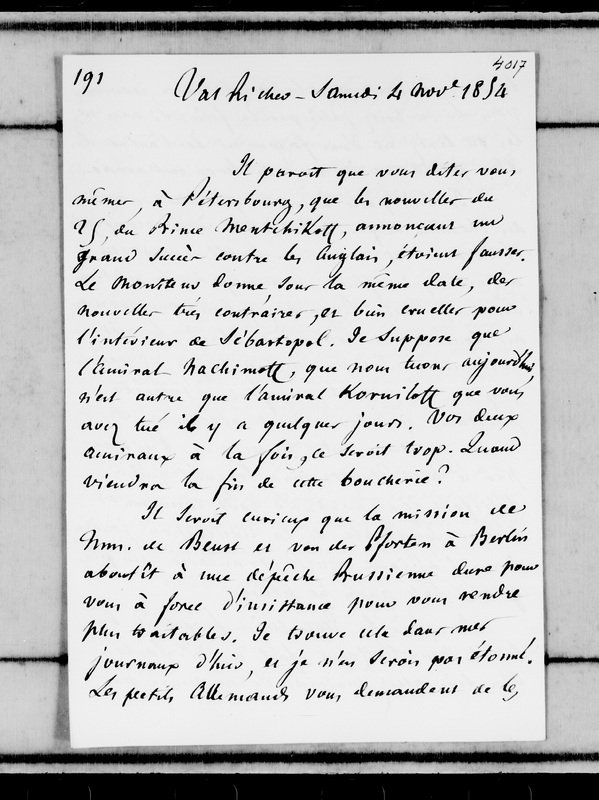 191
4017
Val Richer - Samedi 4 Nov.e 1854
Il paroit que vous dites vous
mêmes, à Pétersbourg, que les nouvelles du
25, du Prince Mentchikoff, annonçant un
grand succès contre les Anglais, étoient fausses.
Le Moniteur donne sous la même date, des
nouvelles très contraires, et bien cruelles pour
l'intérieur de Sébastopol. Je suppose que
l'amiral Nachimoff, que nous tuons aujourd'hui,
n'est autre que l'amiral Korniloff que vous
avez tué il y a quelques jours. Vos deux
amiraux à la fois, ce seroit trop. Quand
viendra la fin de cette boucherie?
Il seroit curieux que la mission de
Mm. de Beust et von der Pfordten à Berlin
aboutît à une dépêche Prussienne dure pour
vous à force d'insistance pour vous rendre
plus traitables. Je trouve cela dans mes
journaux d'hier, et je n'en serois pas étonné.
Les petits Allemands vous demandent de les